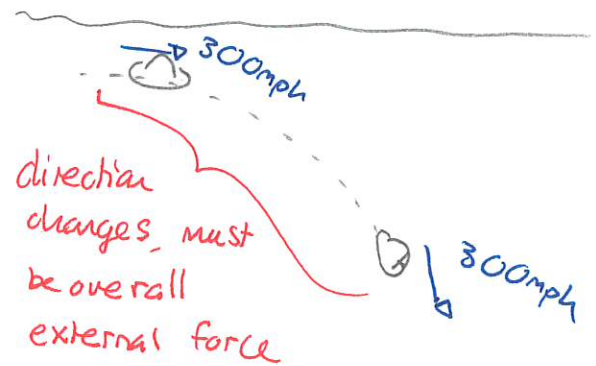 300mph
direction
changes, must
be overall
external force
300mph